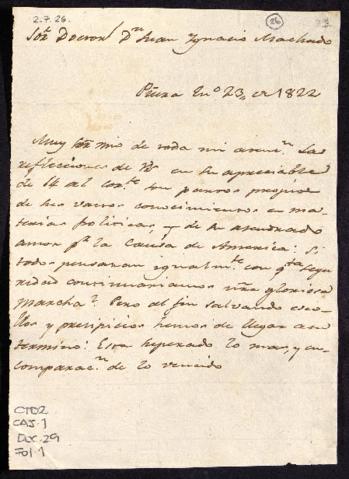 2.7.26.
26
Sor. Doctor Dn. Juan Ygnacio Machado
Piura Eno. 23 de 1822
Muy Sor. mio de toda mi atenn. Las
reflecciones de V. en su apreciable
de 14 del corte. son partos propios
de los vastos conocimientos en ma-
terias politicas, y de su acendrado
amor pa. la causa de America: Si
todos pensaran igualmte. con qta. segu-
ridad continuariamos nra. gloriosa
marcha? Pero al fin salvando esco-
llos, y precipicios hemos de llegar a su
termino: Esta superado lo mas, y en
comparacn. de lo vencido
CTD2
CAJ.1
Doc.29
Fol.1